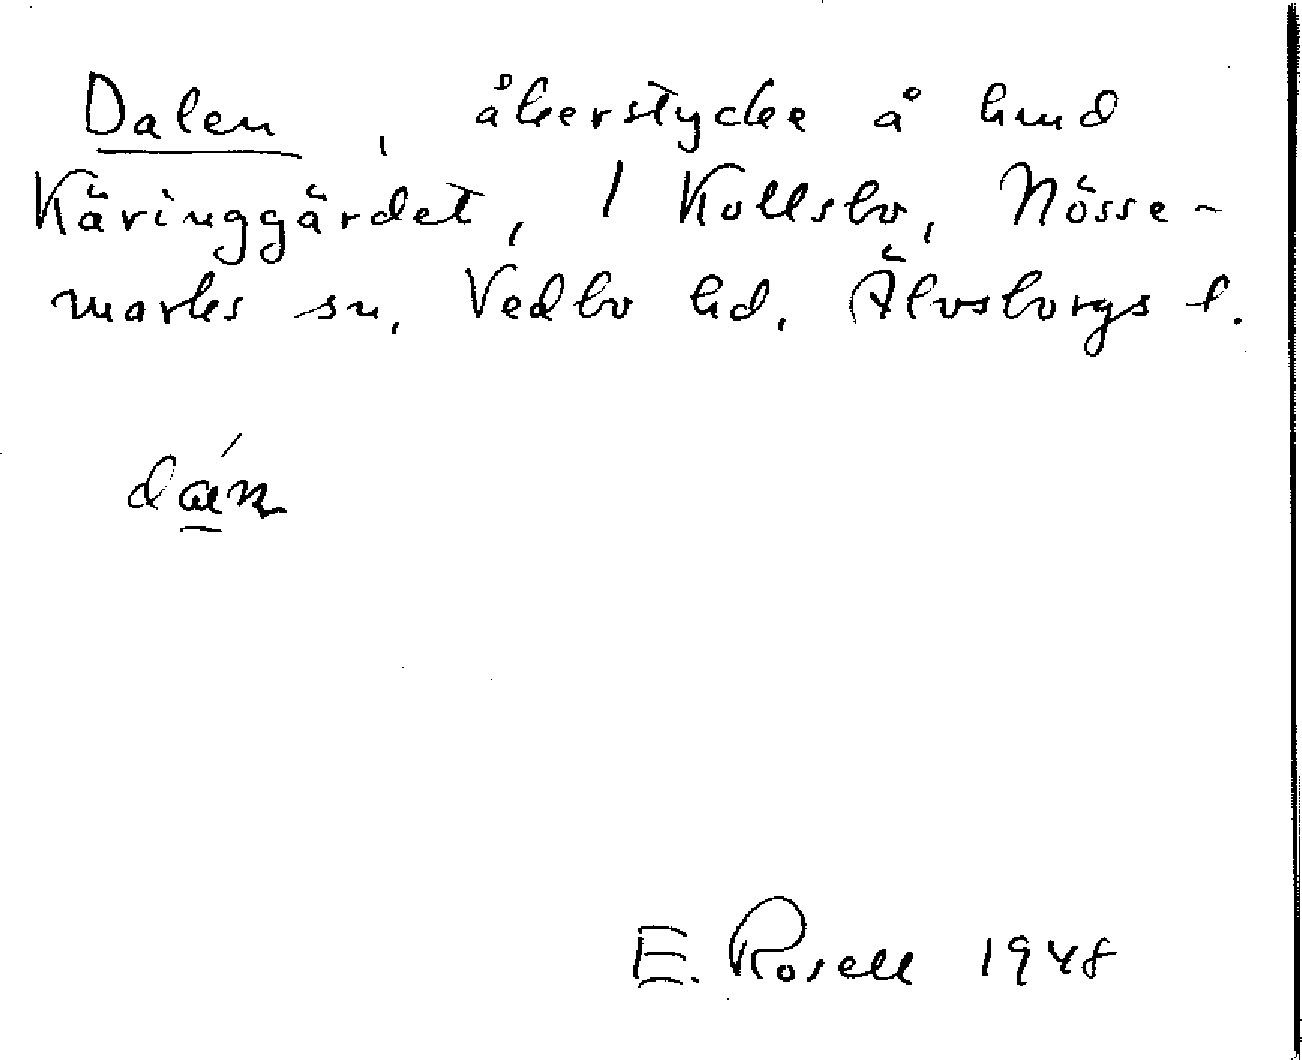 Dalen, åkerstycke å hmd
Käringgärdet, 1 Kollsbo, Nösse-
marks sn, Vedbo hd, Älvsborgs l.
E. Rosell 1948